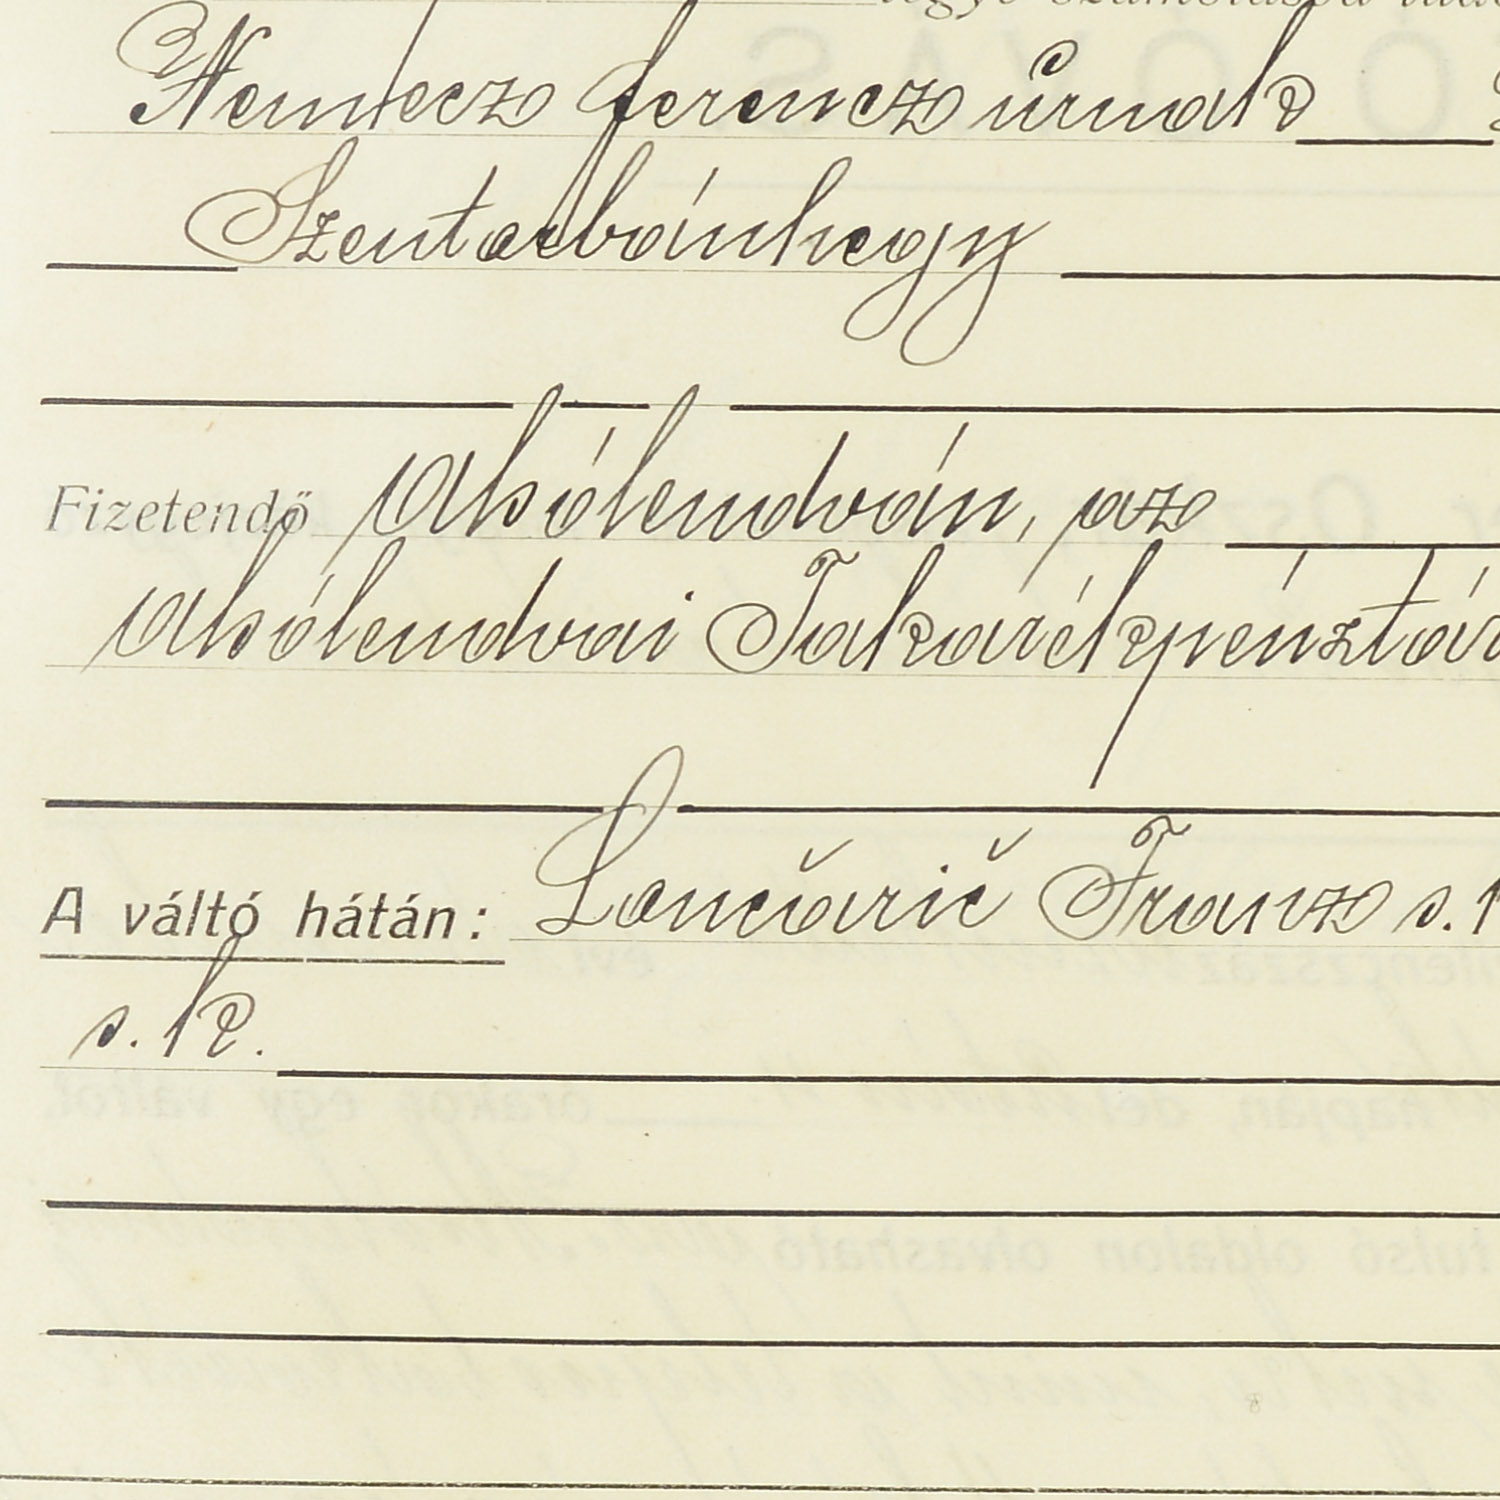 Nemecz Ferencz úrnak
Szentorbánhegy
Fizetendő Alsólendván, az
Alsólendvai Takarékpénztár
A váltó hátán: Lončarič Franz s.
s. k.